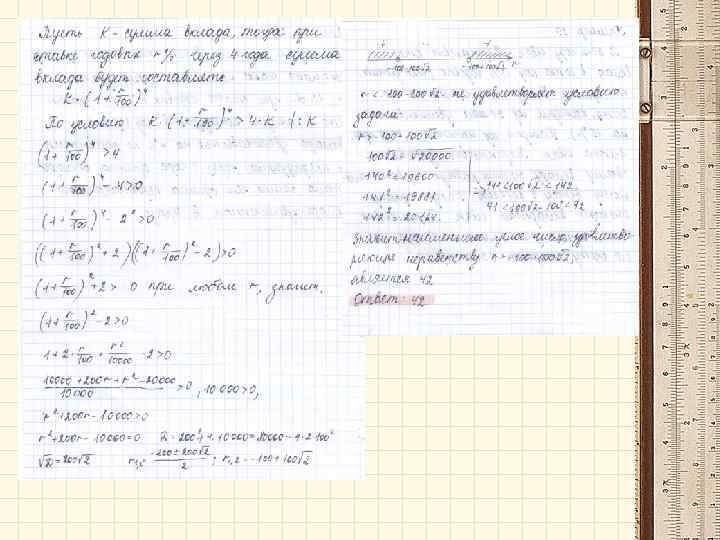 Пусть K - сумма вклада, тогда при
ставке годовых r % через 4 года сумма
вклада будет составлять
K·(1+r/100)⁴
По условию K·(1+r/100)⁴ > 4·K |:K
(1+r/100)⁴ > 4
(1+r/100)⁴ - 4 > 0
(1+r/100)⁴ - 2² > 0
((1+r/100)²+2)((1+r/100)²-2) > 0
(1+r/100)²+2 > 0 при любом r, значит,
(1+r/100)²-2 > 0
1+2·r/100+r²/10000-2 > 0
(10000+200r+r²-20000)/10000 > 0, 10 000 > 0,
r²+200r-10000 > 0
r²+200r-10000=0
√D=200√2 r₁,₂=(-200±200√2)/2; r₁,₂=-100±100√2
-100-100√2 -100+100√2 r
r < -100-100√2 - не удовлетворяет условию
задачи.
r > -100+100√2
100√2 = √20000
140² = 19600
141² = 19881
142² = 20164
=> 141 < 100√2 < 142
41 < 100√2-100 < 42
Значит, наименьшее целое число, удовлетво-
ряющее неравенству r > -100+100√2,
является 42
Ответ: 42